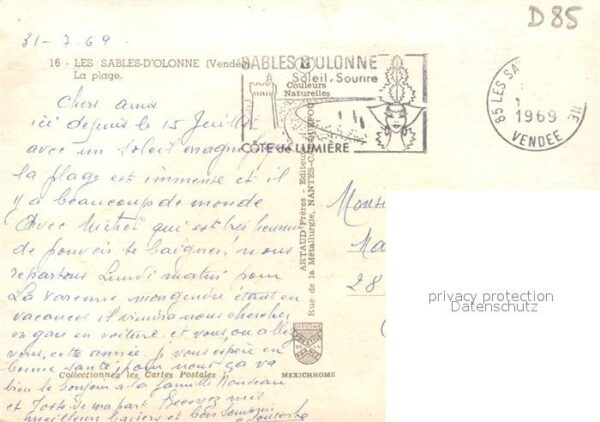 D85
31-7.69.
16 - LES SABLES-D'OLONNE (Vendée)
La plage.
SABLES D'OLONNE
Soleil, Sourire
Couleurs
Naturelles
CÔTE de LUMIÈRE
85 LES SA
1969
VENDEE
Chers amis
ici depuis le 15 Juillet
avec un soleil magnifique
la plage est immense et il
y a beaucoup de monde
avec Michel qui est très heureux
de pouvoir se baigner, nous
repartons Lundi matin pour
La Varenne mon gendre étant en
vacances viendra nous chercher
en gare en voiture. et vous ou allez
vous, cette année. je vous espère en
bonne santé, pour nous ça va
bien le bonjour à la famille
et de ma part. Recevez mes
meilleurs baisers et bon
ARTAUD Frères - Editeurs
Rue de la Métallurgie, NANTES-CARQUEFOU
Monse
Ma
28
privacy protection
Datenschutz
DIPLOME
PRESTIGE
FRANCE
Collectionnez les Cartes Postales
MEXICHROME